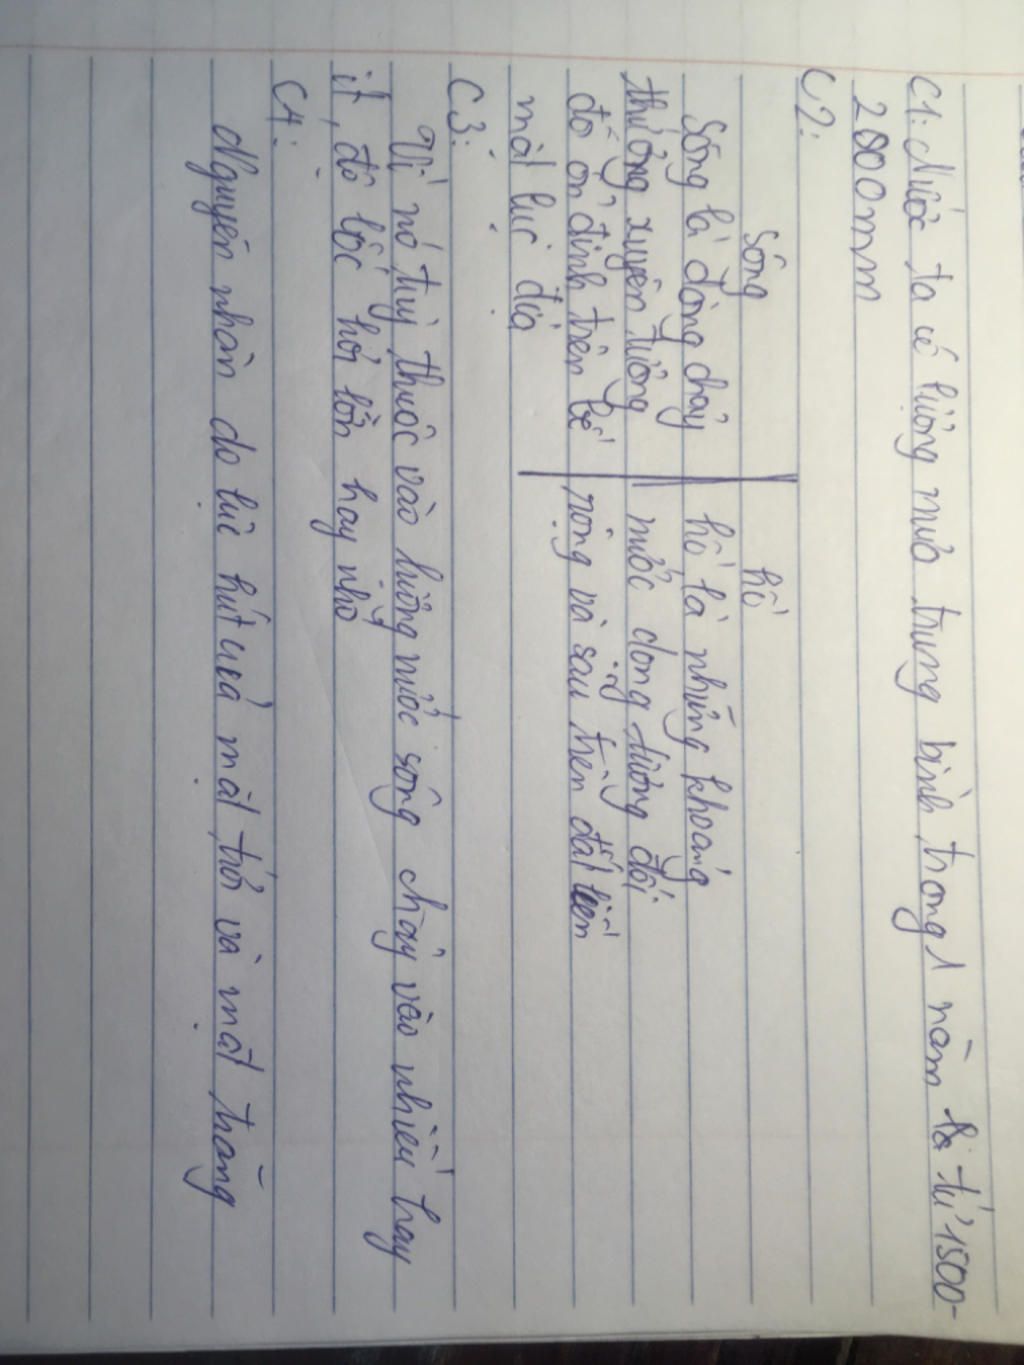 C1: Nước ta có lượng mưa trung bình trong 1 năm là từ 1500-
2000mm
C2:
Sông
hồ
Sông là dòng chảy
hồ là những khoảng
thường xuyên tương
nước đọng tương đối
đối ổn định trên bề
rộng và sâu trên đất liền
mặt lục địa
C3:
Vì nó tuỳ thuộc vào lượng nước sông chảy vào nhiều hay
ít, độ bốc hơi lớn hay nhỏ
C4:
Nguyên nhân do lực hút của mặt trời và mặt trăng